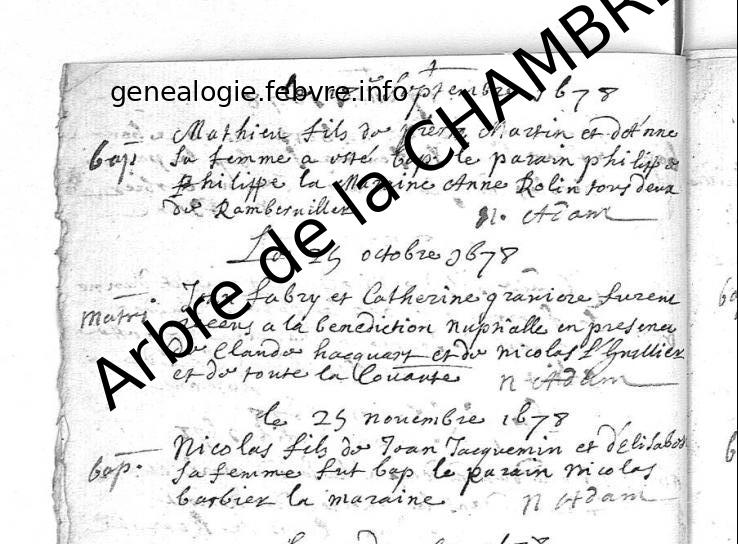 genealogie.febvre.info
Arbre de la CHAMBRE
septembre 1678
bap. Mathieu fils de pierre Martin et d'Anne
sa femme a esté bap. le parain philippe
philippe la Maraine Anne Rolin tous deux
de Ramberviller n. Adam
Le 25 octobre 1678
matri Jean fabry et Catherine graniere furent
receus a la benediction nuptialle en presence
de Claude hacquart et de nicolas
et de toute la n Adam
le 25 novembre 1678
bap. Nicolas fils de Jean Jacquemin et d'Elisabet
sa femme fut bap le parain nicolas
barbier la maraine n Adam